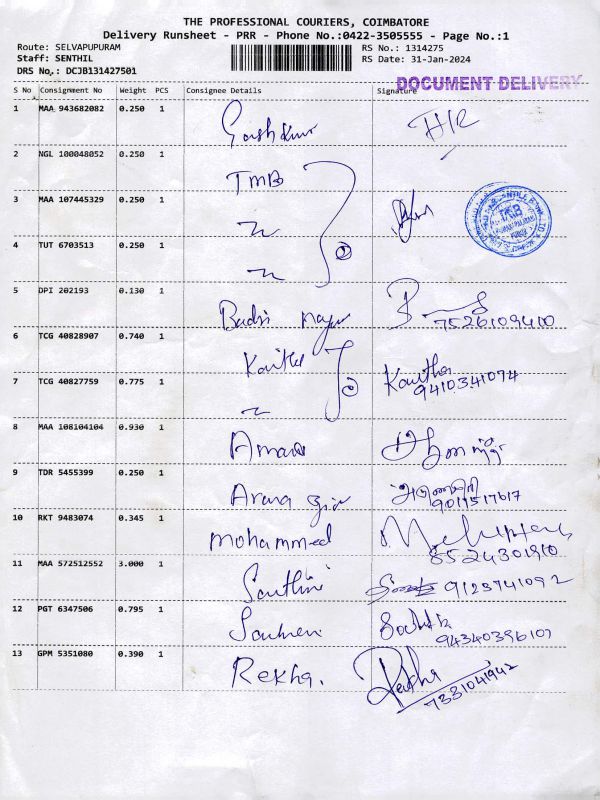 THE PROFESSIONAL COURIERS, COIMBATORE
Delivery Runsheet - PRR - Phone No.:0422-3505555 - Page No.:1
Route: SELVAPUPURAM RS No.: 1314275
Staff: SENTHIL RS Date: 31-Jan-2024
DRS No.: DCJB131427501
DOCUMENT DELIVERY
S No Consignment No Weight PCS Consignee Details Signature
1 MAA 943682082 0.250 1 H/R
2 NGL 100048052 0.250 1 TMB
3 MAA 107445329 0.250 1
4 TUT 6703513 0.250 1
5 DPI 202193 0.130 1 Badri
7526109400
6 TCG 40828907 0.740 1
7 TCG 40827759 0.775 1 Kavitha
9410341074
8 MAA 108104104 0.930 1
9 TDR 5455399 0.250 1
9011517617
10 RKT 9483074 0.345 1 mohammed
8524301910
11 MAA 572512552 3.000 1 9123741092
12 PGT 6347506 0.795 1
9434039610
13 GPM 5351080 0.390 1 Rekha. Rekha
7331041942